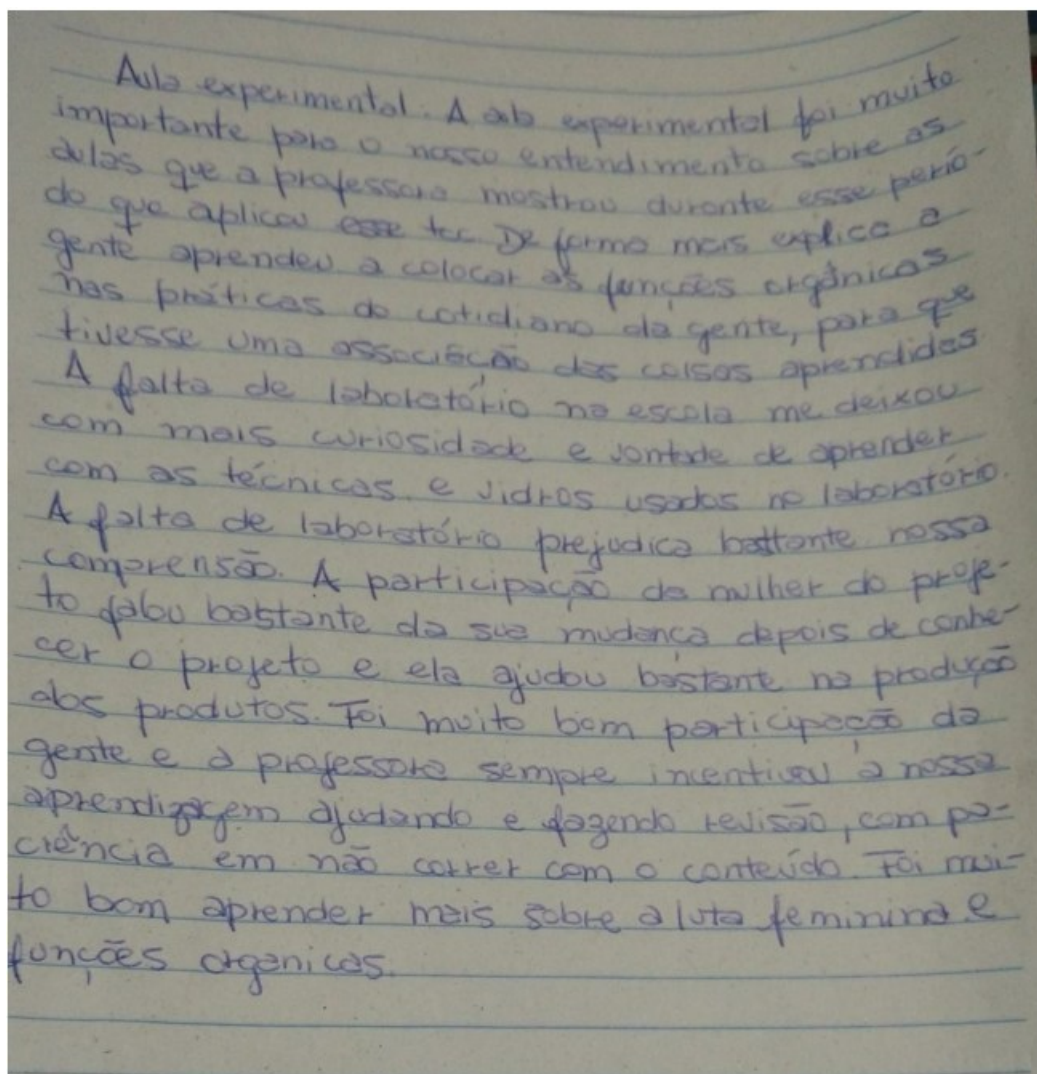 Aula experimental. A aula experimental foi muito
importante para o nosso entendimento sobre as
aulas que a professora mostrou durante esse perío-
do que aplicou esse tcc De forma mais explica a
gente aprendeu a colocar as funções orgânicas
nas práticas do cotidiano da gente, para que
tivesse uma associação das coisas aprendidas
A falta de laboratório na escola me deixou
com mais curiosidade e vontade de aprender
com as técnicas e vidros usados no laboratório.
A falta de laboratório prejudica bastante nossa
comprensão. A participação da mulher do proje-
to falou bastante da sua mudança depois de conhe-
cer o projeto e ela ajudou bastante na produção
dos produtos. Foi muito bom participação da
gente e a professora sempre incentivou a nossa
aprendizagem ajudando e fazendo revisão, com pa-
ciência em não correr com o conteúdo. Foi mui-
to bom aprender mais sobre a luta feminina e
funções organicas.